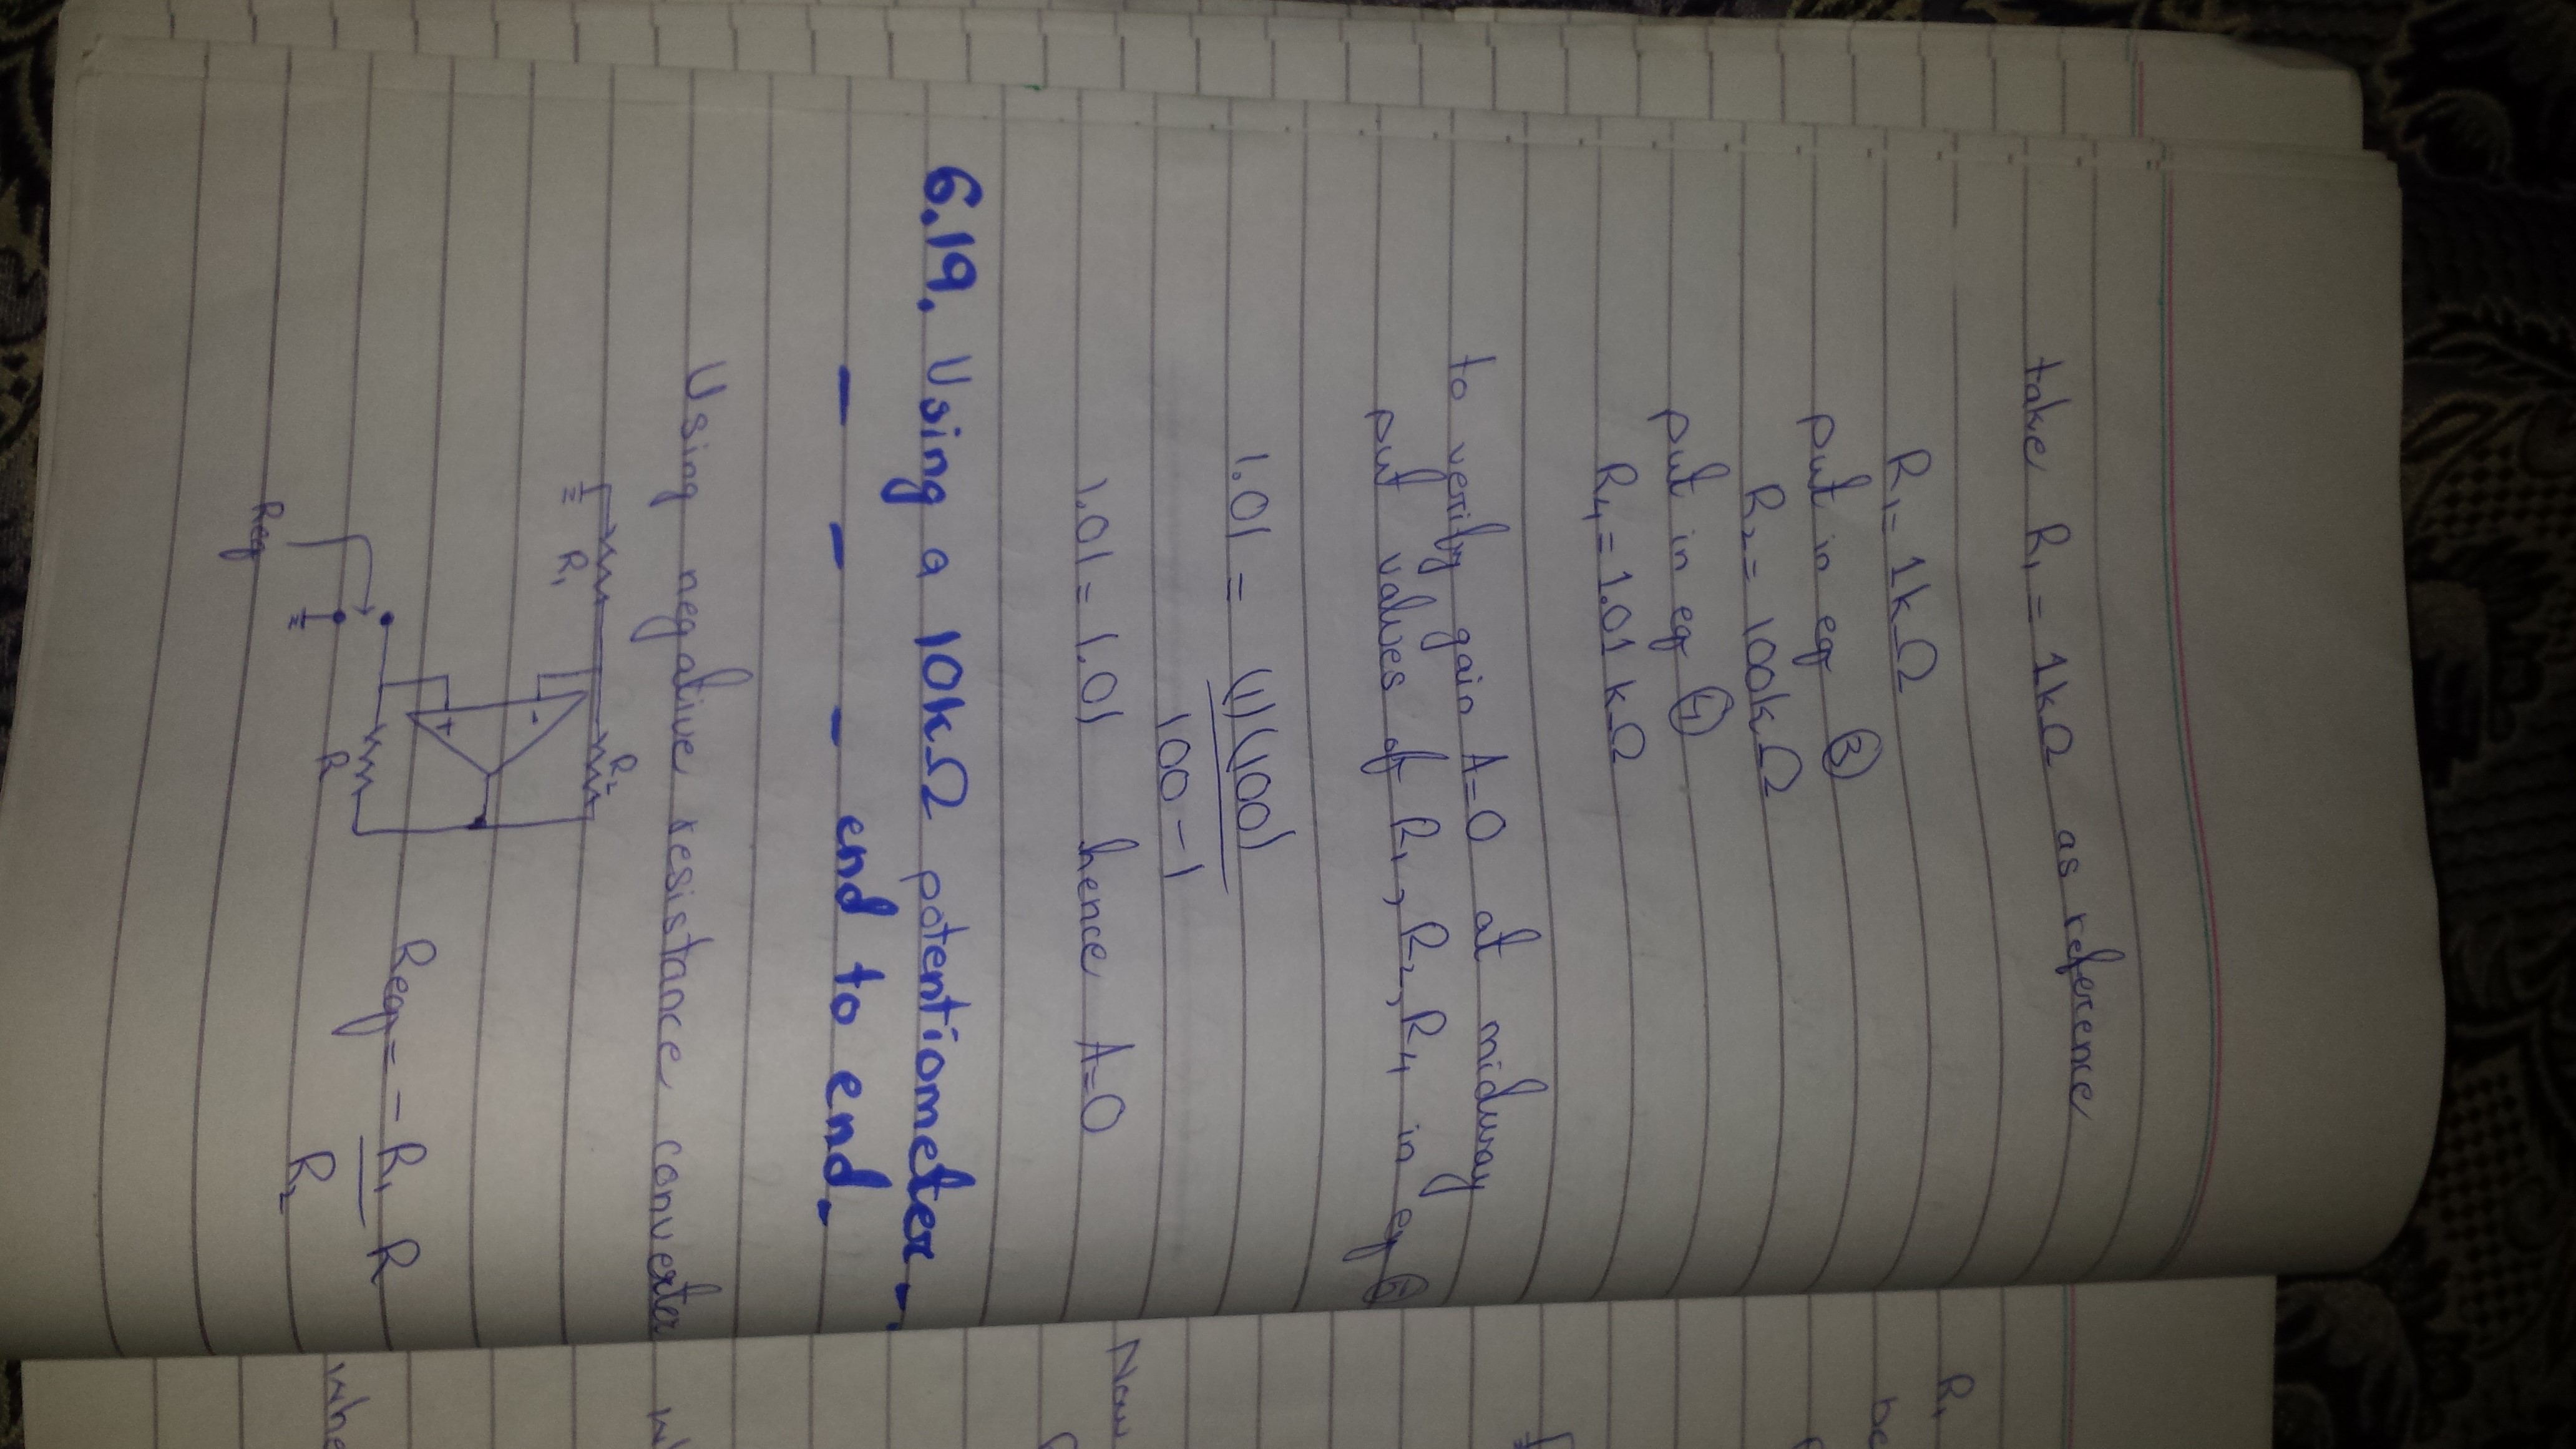 take R₁ = 1kΩ as reference
R₁ = 1kΩ
put in eq ③
R₂ = 100kΩ
put in eq ④
R₄ = 1.01 kΩ
to verify gain A=0 at midway
put values of R₁, R₂, R₄ in eq
1.01 = (1)(100)
100-1
1.01 = 1.01 hence A=0
6.19. Using a 10kΩ potentiometer.
— — — end to end.
Using negative resistance converter
R₁
R₂
-
+
R
Req
Req = - R₁ R
R₂
R₁
be
Now
whe